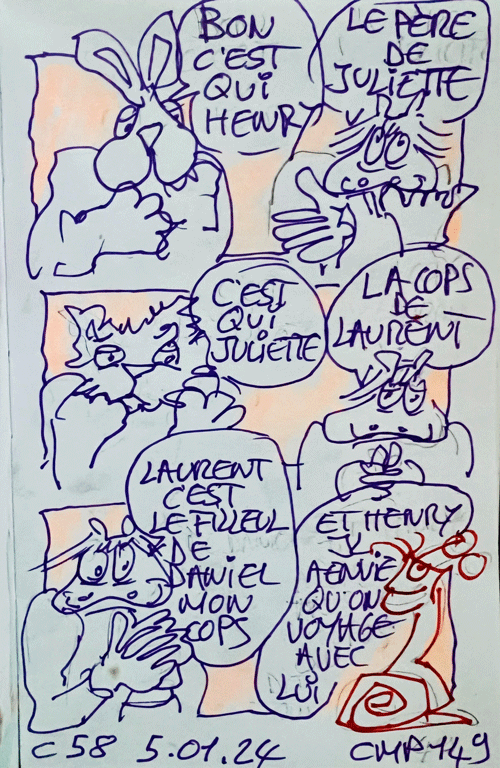 BON
C'EST
QUI
HENRY
LE PÈRE
DE
JULIETTE
C'EST
QUI
JULIETTE
LA COPS
DE
LAURENT
LAURENT
C'EST
LE FILLEUL
DE
DANIEL
MON
COPS
ET HENRY
IL
A ENVIE
QU'ON
VOYAGE
AVEC
LUI
C58 5.01.24 CMP149